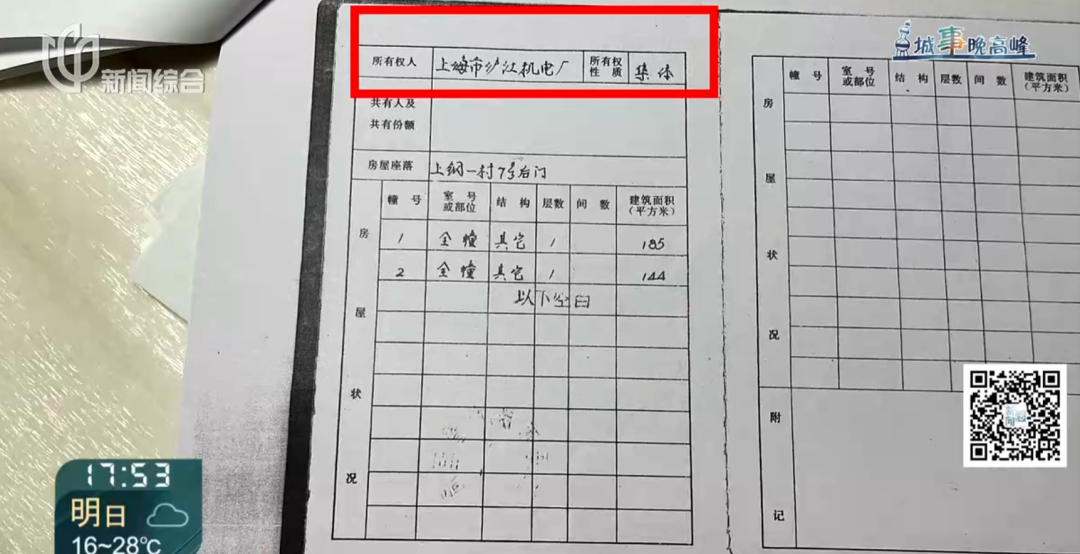 新闻综合
城事晚高峰
所有权人 上海市沪江机电厂 所有权性质 集体
共有人及
共有份额
房屋座落 上钢一村7号后门
房屋状况
幢号 室号或部位 结构 层数 间数 建筑面积(平方米)
1 全幢 其它 1 185
2 全幢 其它 1 144
以下空白
幢号 室号或部位 结构 层数 间数 建筑面积(平方米)
房屋状况
附记
17:53
明日
16~28℃